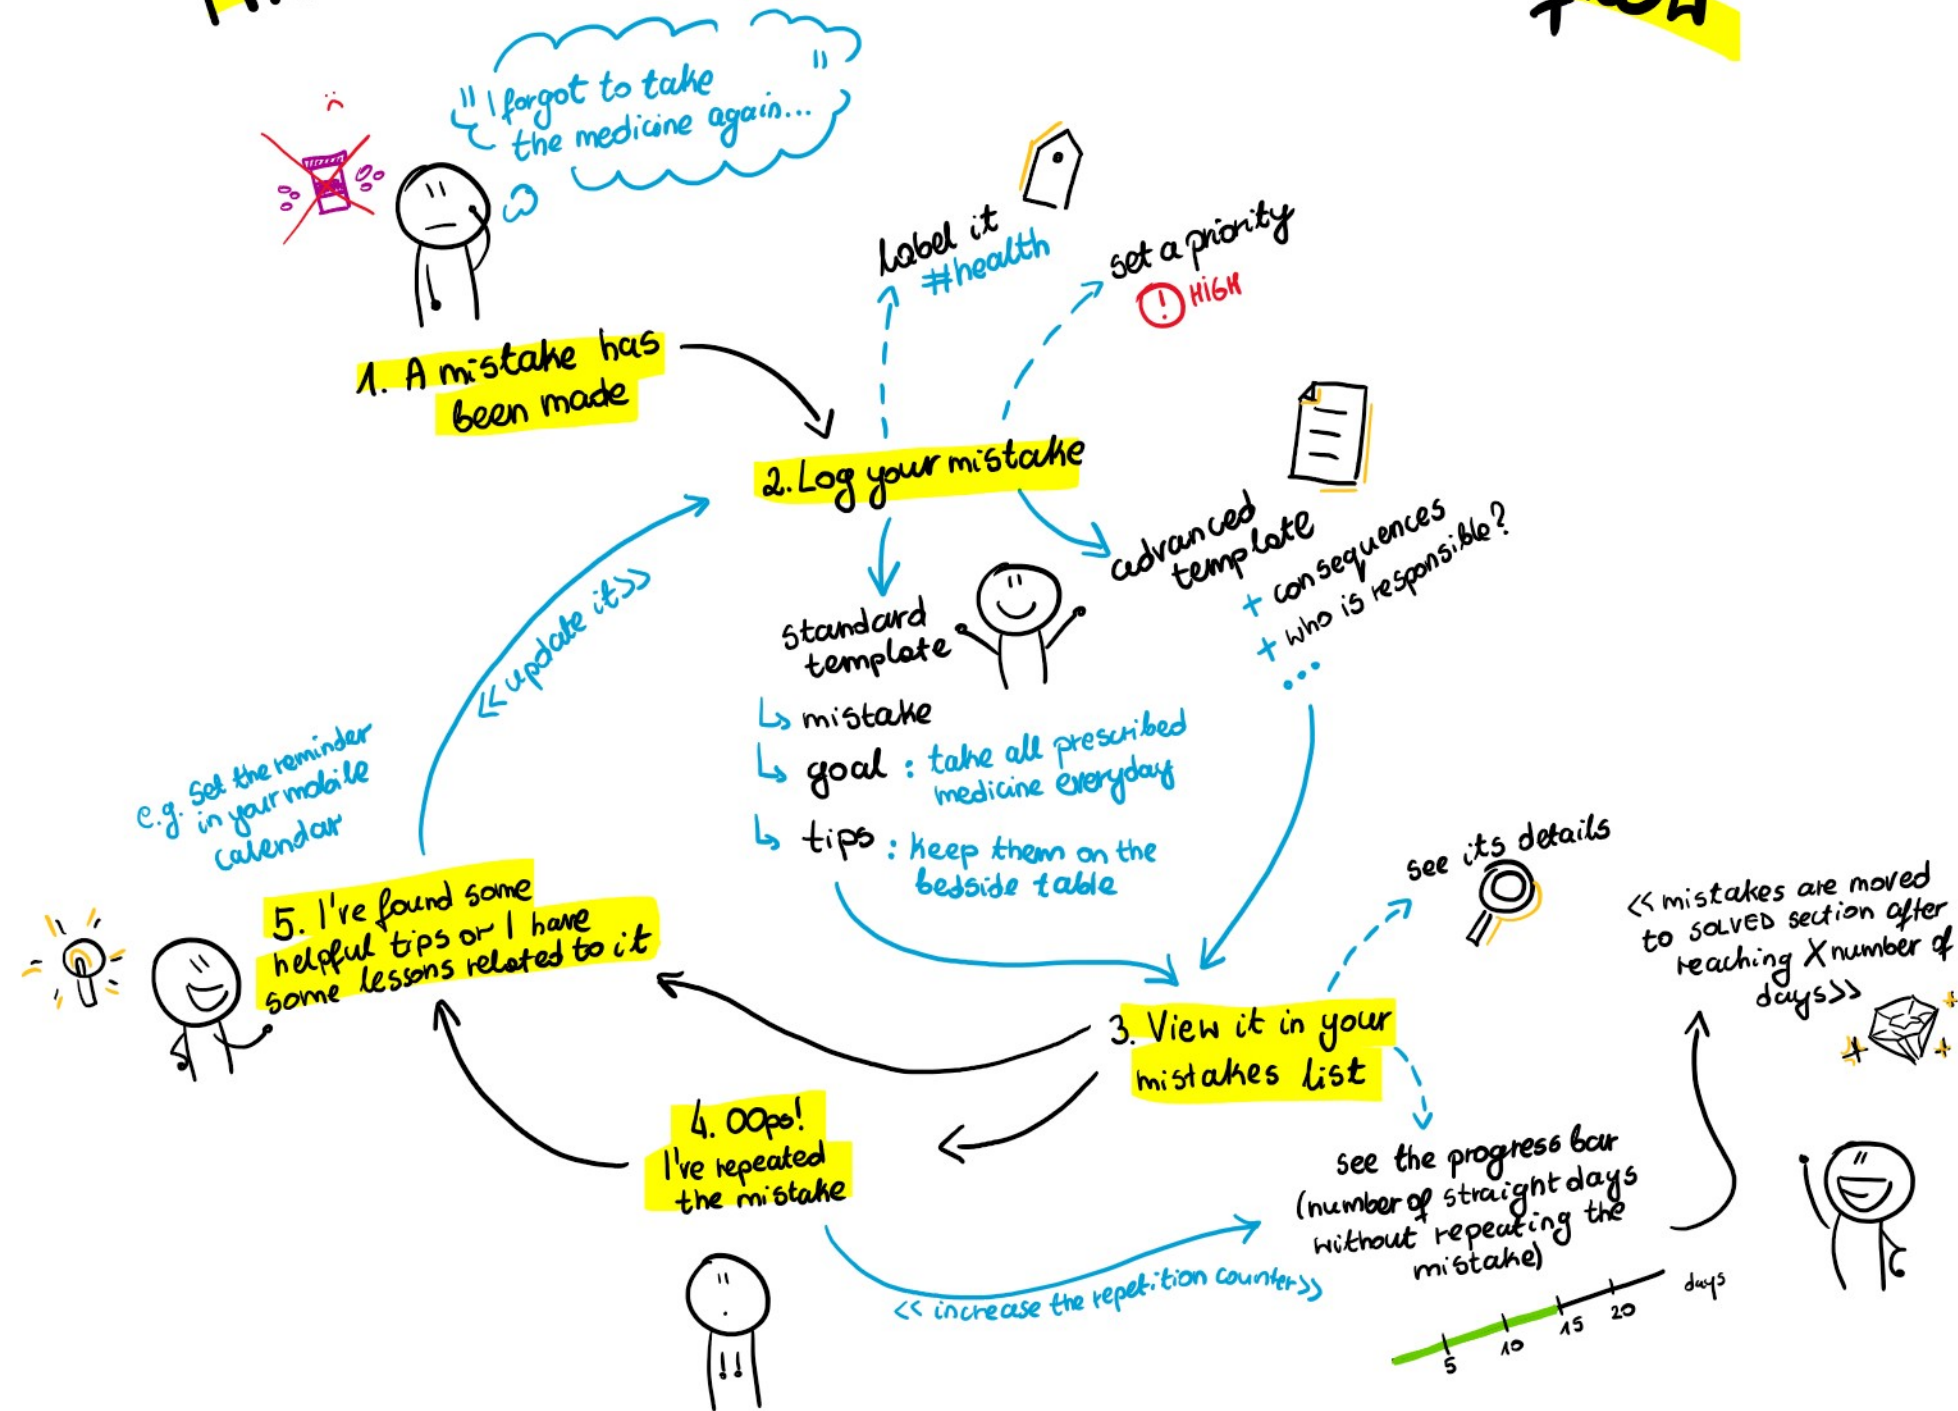 "I forgot to take
the medicine again..."
Label it
#health
set a priority
! HIGH
1. A mistake has
been made
2. Log your mistake
advanced
template
+ consequences
+ who is responsible?
...
standard
template
↳ mistake
↳ goal : take all prescribed
medicine everyday
↳ tips : keep them on the
bedside table
<<update it>>
e.g. Set the reminder
in your mobile
calendar
5. I've found some
helpful tips or I have
some lessons related to it
see its details
<<mistakes are moved
to SOLVED section after
reaching X number of
days>>
3. View it in your
mistakes list
4. OOps!
I've repeated
the mistake
see the progress bar
(number of straight days
without repeating the
mistake)
<< increase the repetition counter>>
5 10 15 20 days